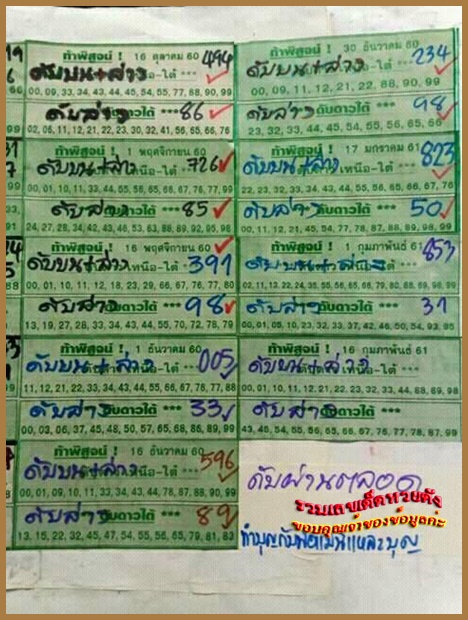 ท้าพิสูจน์ ! 16 ตุลาคม 60 494
ดับบน+ล่าง
00, 09, 33, 34, 43, 44, 45, 54, 88, 89, 90, 99
ดับล่าง ดับดาวใต้ *** 86
02, 06, 11, 12, 21, 22, 23, 30, 32, 41, 56, 65, 66, 76
ท้าพิสูจน์ ! 1 พฤศจิกายน 60 726
ดับบน+ล่าง เหนือ-ใต้
00, 01, 10, 11, 33, 44, 55, 56, 65, 66, 67, 76, 77, 99
ดับล่าง ดับดาวใต้ *** 85
24, 27, 28, 34, 42, 43, 46, 53, 64, 72, 82, 92, 95, 98
ท้าพิสูจน์ ! 16 พฤศจิกายน 60 391
ดับบน+ล่าง เหนือ-ใต้
00, 01, 10, 11, 12, 18, 21, 22, 33, 44, 77, 78, 87, 99
ดับล่าง ดับดาวใต้ *** 98
13, 19, 27, 28, 33, 34, 43, 44, 55, 70, 72, 78, 79
ท้าพิสูจน์ ! 1 ธันวาคม 60 005
ดับบน+ล่าง
11, 12, 21, 22, 33, 34, 43, 44, 55, 67, 76, 77, 88
ดับล่าง ดับดาวใต้ *** 33
00, 03, 06, 37, 45, 48, 50, 57, 65, 68, 86, 88, 89, 98
ท้าพิสูจน์ ! 16 ธันวาคม 60 596
ดับบน+ล่าง เหนือ-ใต้
00, 01, 09, 10, 33, 34, 43, 44, 88, 89, 90, 99
ดับล่าง ดับดาวใต้ *** 89
13, 15, 22, 32, 45, 47, 54, 55, 56, 65, 75, 79, 81, 83
ท้าพิสูจน์ ! 30 ธันวาคม 60 234
ดับบน+ล่าง เหนือ-ใต้
00, 09, 11, 12, 21, 22, 88, 90, 99
ดับล่าง ดับดาวใต้ *** 98
23, 32, 33, 44, 45, 54, 55, 56, 65, 66
ท้าพิสูจน์ ! 17 มกราคม 61 823
ดับบน+ล่าง เหนือ-ใต้
22, 23, 32, 33, 34, 43, 44, 45, 54, 55, 66, 67, 76
ดับล่าง ดับดาวใต้ 50
00, 11, 12, 21, 22, 33, 44, 55, 66, 77, 88, 99
ท้าพิสูจน์ ! 1 กุมภาพันธ์ 61 853
ดับบน+ล่าง
ดับล่าง ดับดาวใต้ 31
ท้าพิสูจน์ ! 16 กุมภาพันธ์ 61
ดับบน+ล่าง
00, 01, 10, 11, 12, 21, 22, 23, 32, 33, 44, 88, 89, 98
ดับล่าง ดับดาวใต้ ***
43, 46, 54, 55, 56, 65, 66, 67, 76, 77, 78, 87, 99
ดับผ่านตลอด
รวมเลขเด็ดหวยดัง
ขอบคุณเจ้าของข้อมูลค่ะ